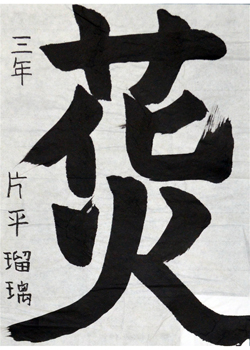 花火
三年 片平瑠璃